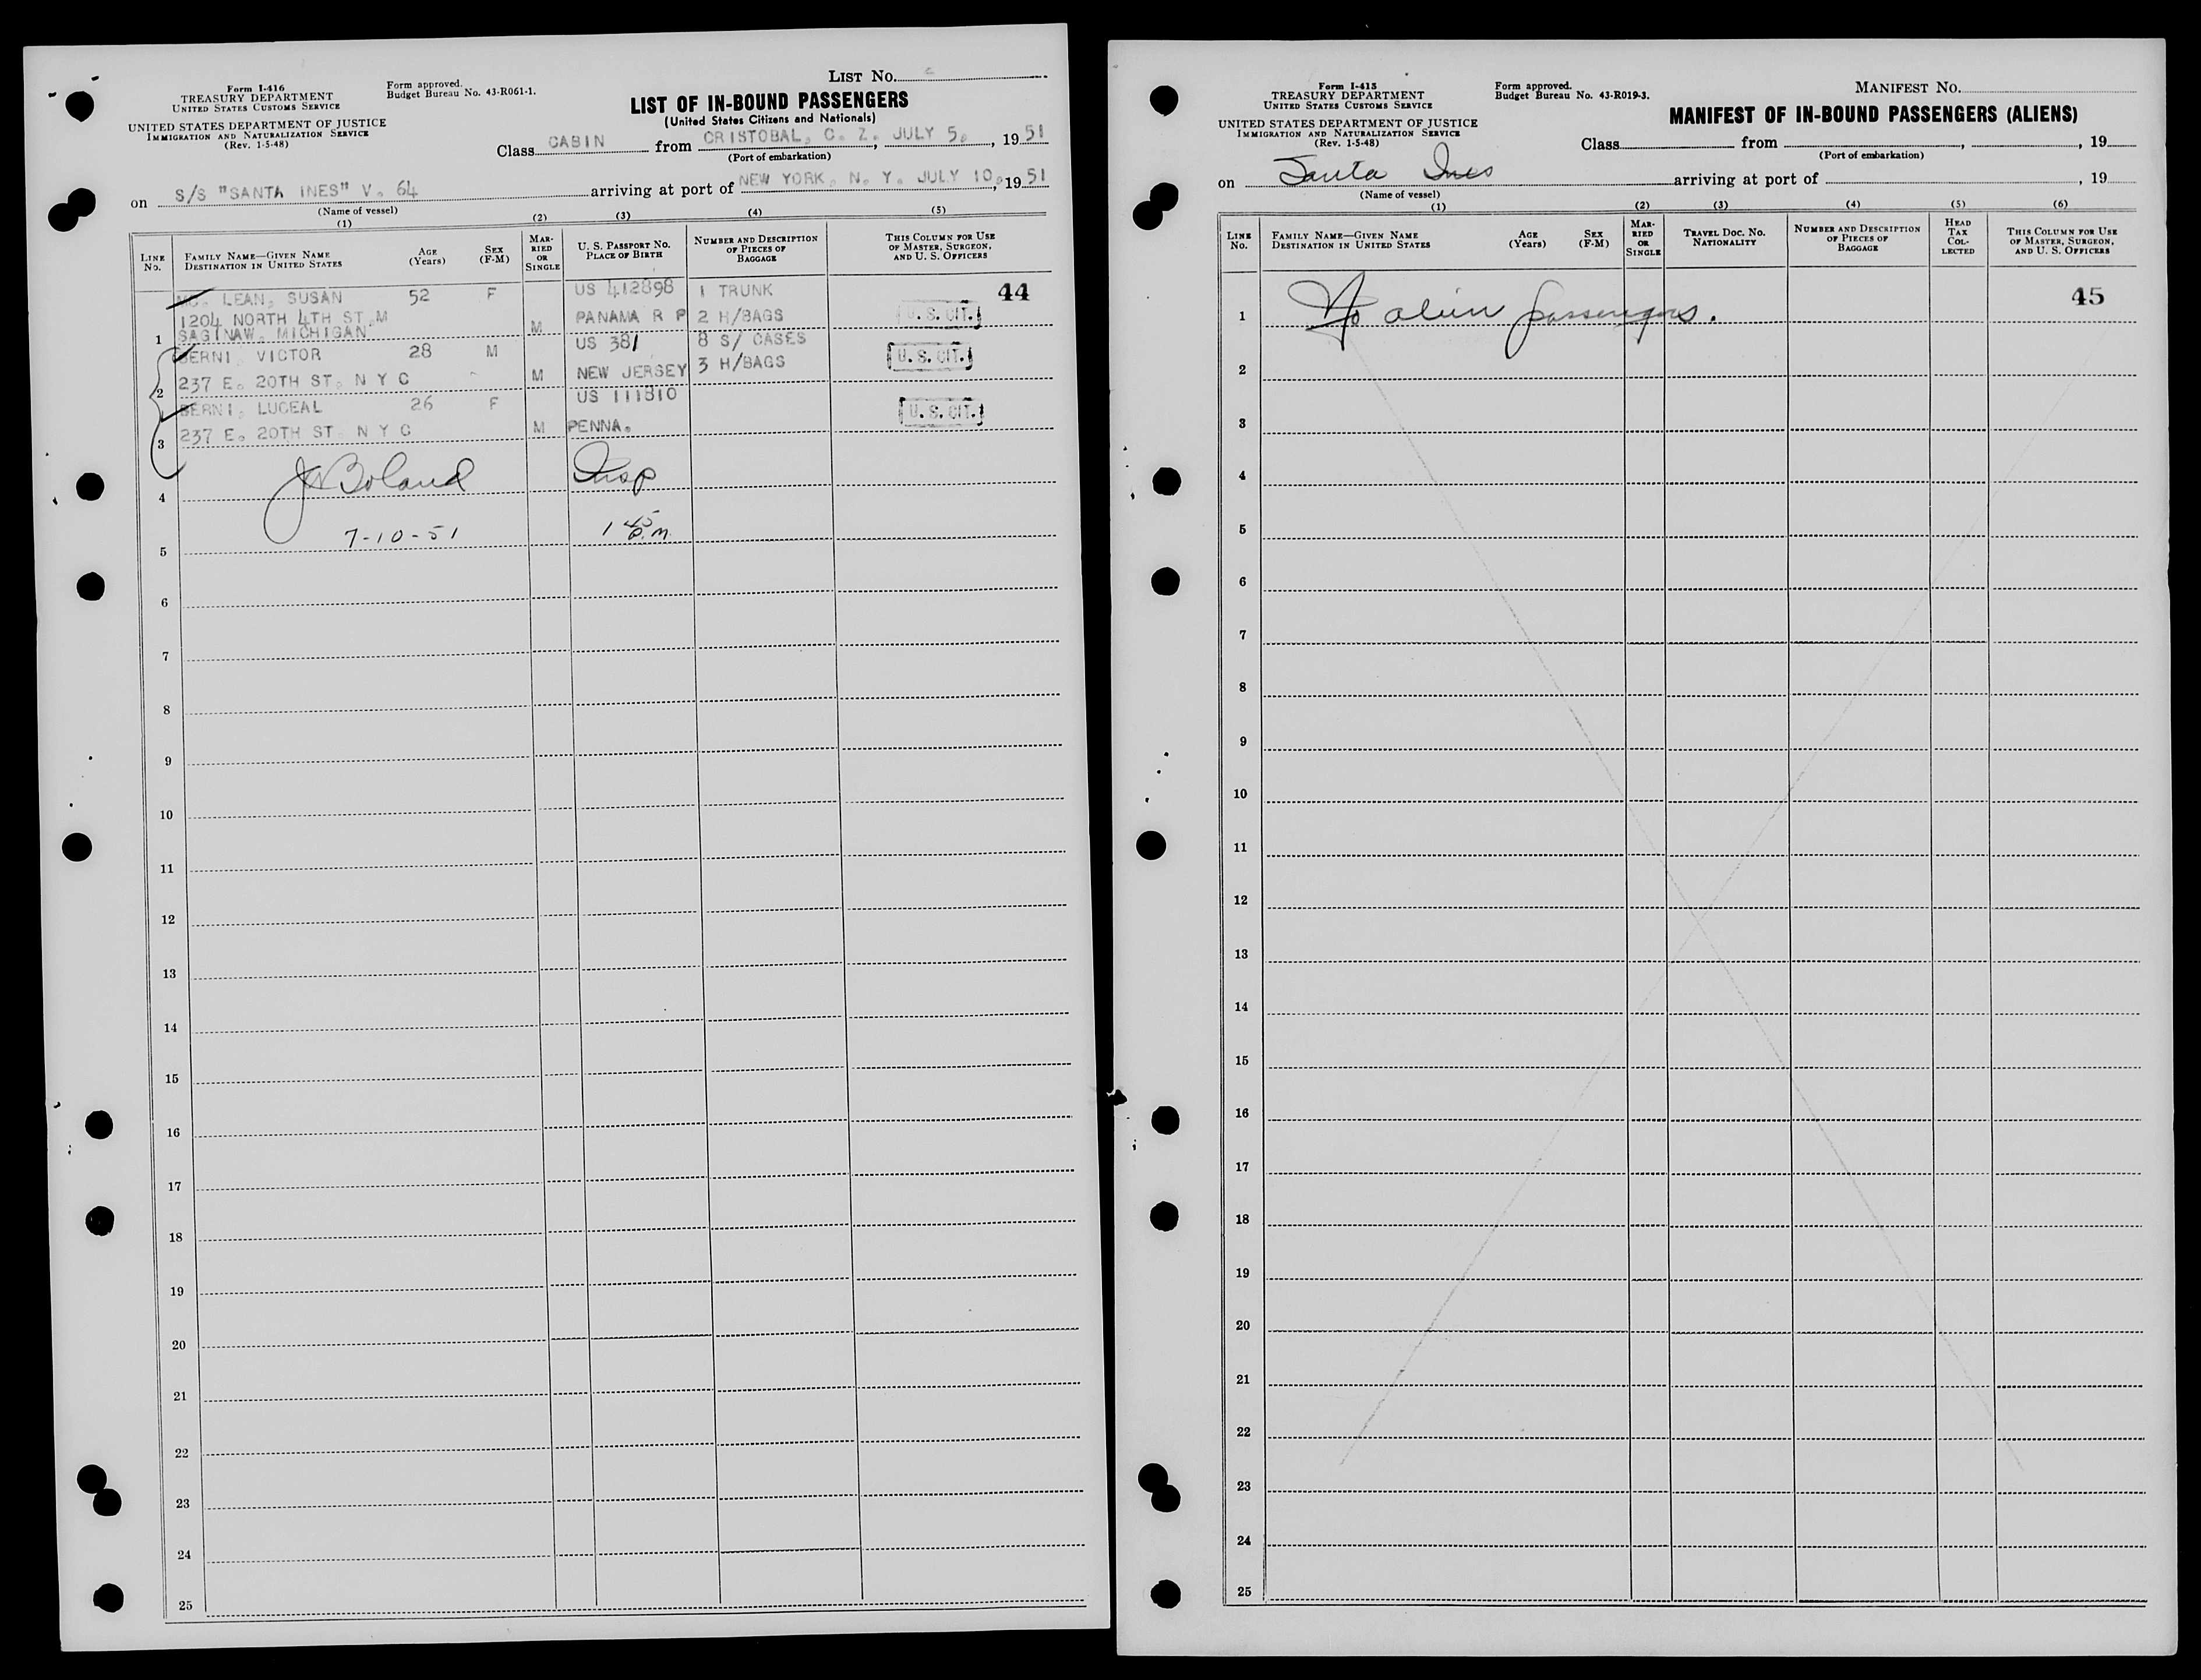 Form I-416
TREASURY DEPARTMENT
UNITED STATES CUSTOMS SERVICE
UNITED STATES DEPARTMENT OF JUSTICE
IMMIGRATION AND NATURALIZATION SERVICE
(Rev. 1-5-48)
Form approved.
Budget Bureau No. 43-R061-1.
LIST NO.
LIST OF IN-BOUND PASSENGERS
(United States Citizens and Nationals)
Class CABIN from CRISTOBAL, C. Z. , JULY 5, , 19 51
(Port of embarkation)
on S/S "SANTA INES" V. 64 arriving at port of NEW YORK, N. Y. JULY 10, , 19 51
(Name of vessel)
(1) (2) (3) (4) (5)
LINE NO. FAMILY NAME—GIVEN NAME DESTINATION IN UNITED STATES AGE (Years) SEX (F-M) MARRIED OR SINGLE U. S. PASSPORT NO. PLACE OF BIRTH NUMBER AND DESCRIPTION OF PIECES OF BAGGAGE THIS COLUMN FOR USE OF MASTER, SURGEON, AND U. S. OFFICERS
MC. LEAN, SUSAN 52 F US 412898 1 TRUNK 44
1204 NORTH 4TH ST.M PANAMA R P 2 H/BAGS U. S. CIT.
1 SAGINAW, MICHIGAN M
BERNI, VICTOR 28 M US 381 8 S/ CASES
237 E. 20TH ST. N Y C M NEW JERSEY 3 H/BAGS U. S. CIT.
2
BERNI, LUCEAL 26 F US 111810
237 E. 20TH ST. N Y C M PENNA. U. S. CIT.
3
J Boland Insp
4
7-10-51 1 45 p.m.
5
6
7
8
9
10
11
12
13
14
15
16
17
18
19
20
21
22
23
24
25
Form I-415
TREASURY DEPARTMENT
UNITED STATES CUSTOMS SERVICE
UNITED STATES DEPARTMENT OF JUSTICE
IMMIGRATION AND NATURALIZATION SERVICE
(Rev. 1-5-48)
Form approved.
Budget Bureau No. 43-R019-3.
MANIFEST NO.
MANIFEST OF IN-BOUND PASSENGERS (ALIENS)
Class from , , 19
(Port of embarkation)
on Santa Ines arriving at port of , 19
(Name of vessel)
(1) (2) (3) (4) (5) (6)
LINE NO. FAMILY NAME—GIVEN NAME DESTINATION IN UNITED STATES AGE (Years) SEX (F-M) MARRIED OR SINGLE TRAVEL DOC. NO. NATIONALITY NUMBER AND DESCRIPTION OF PIECES OF BAGGAGE HEAD TAX COLLECTED THIS COLUMN FOR USE OF MASTER, SURGEON, AND U. S. OFFICERS
45
1 No alien passengers.
2
3
4
5
6
7
8
9
10
11
12
13
14
15
16
17
18
19
20
21
22
23
24
25